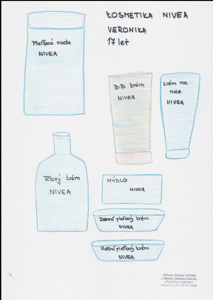 KOSMETIKA NIVEA
VERONIKA
17 let
Pleťová voda
NIVEA
BB krém
NIVEA
krém na
ruce
NIVEA
Tělový krém
NIVEA
MÝDLO
NIVEA
Denní pleťový krém
NIVEA
Noční pleťový krém
NIVEA